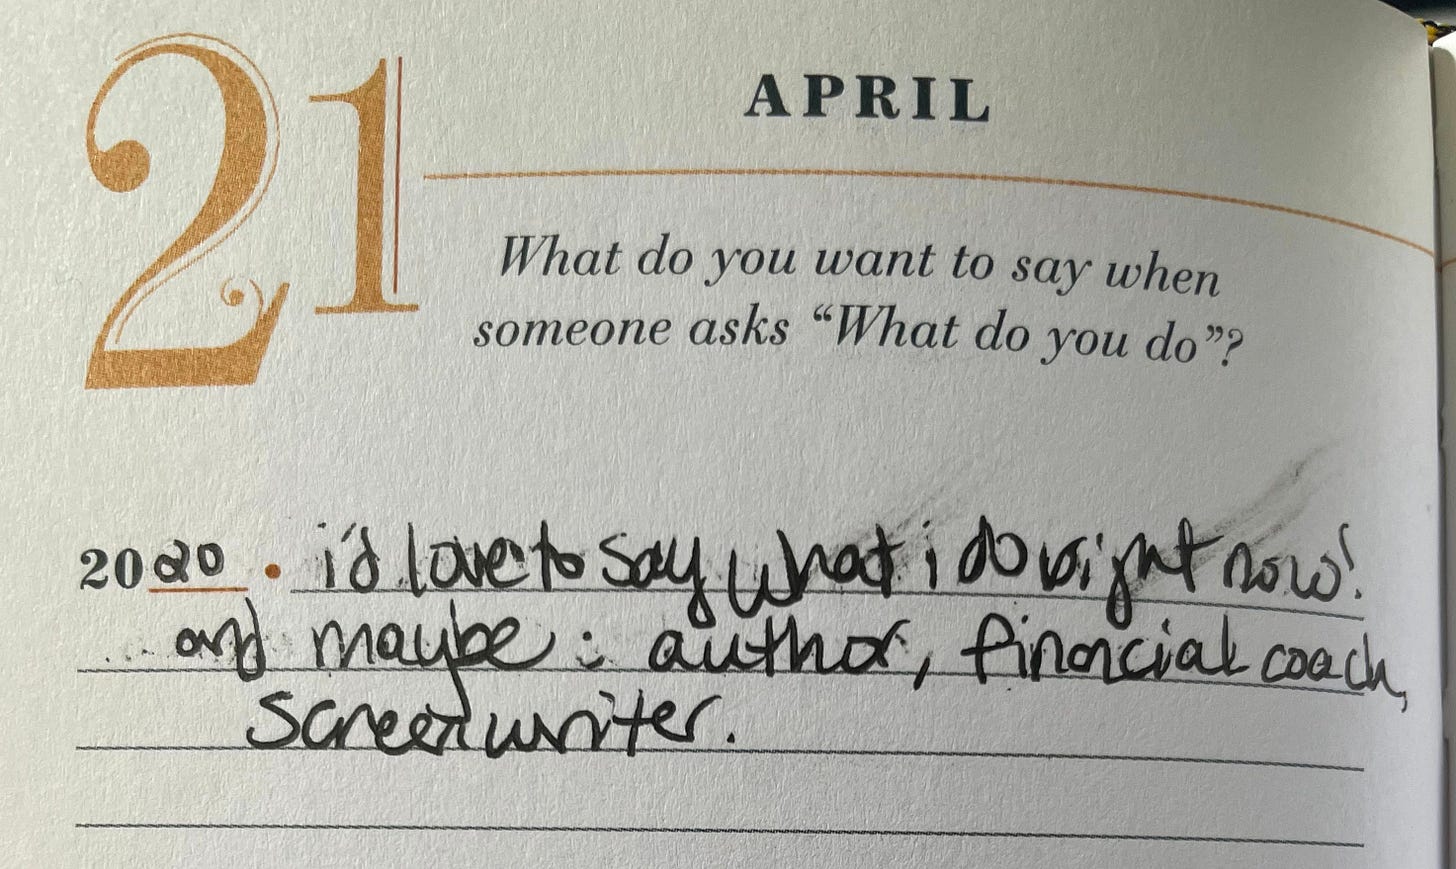 21
APRIL
What do you want to say when
someone asks “What do you do”?
2020 • i'd love to say what i do right now!
and maybe: author, financial coach,
screenwriter.